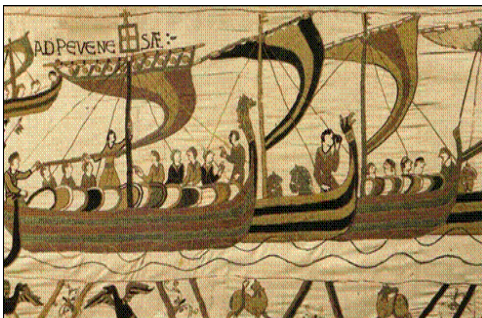 AD PEVENE SÆ:-